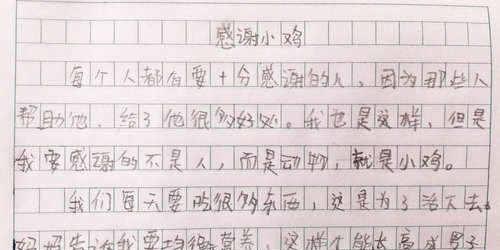 感谢小鸡
每个人都有要十分感谢的人，因为那些人
帮助他，给了他很多好处。我也是这样，但是
我要感谢的不是人，而是动物，就是小鸡。
我们每天要吃很多东西，这是为了活下去。
妈妈告诉我要均衡营养，这样才能长高